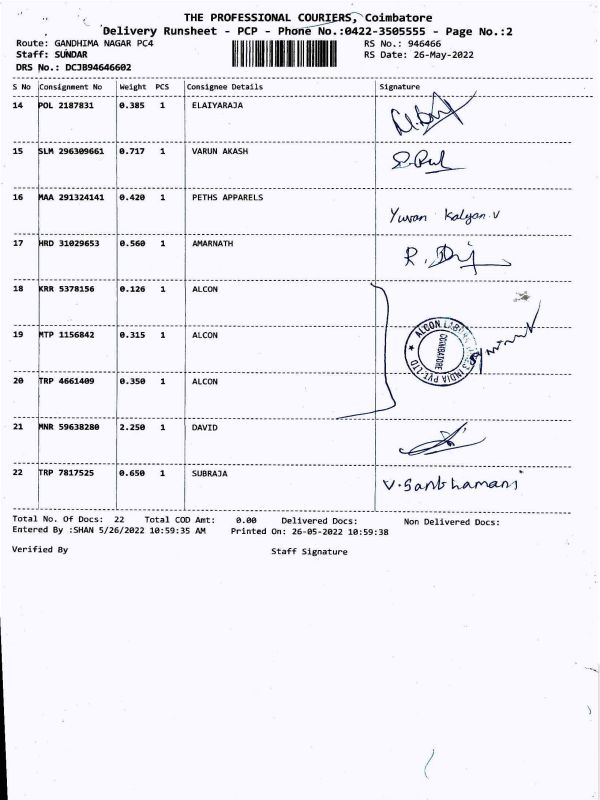 THE PROFESSIONAL COURIERS, Coimbatore
Delivery Runsheet - PCP - Phone No.:0422-3505555 - Page No.:2
Route: GANDHIMA NAGAR PC4 RS No.: 946466
Staff: SUNDAR RS Date: 26-May-2022
DRS No.: DCJB94646602
S No Consignment No Weight PCS Consignee Details Signature
14 POL 2187831 0.385 1 ELAIYARAJA
15 SLM 296309661 0.717 1 VARUN AKASH
16 MAA 291324141 0.420 1 PETHS APPARELS
Yuvan Kalyan.V
17 HRD 31029653 0.560 1 AMARNATH
18 KRR 5378156 0.126 1 ALCON
19 MTP 1156842 0.315 1 ALCON
ALCON INDIA PVT. LTD
COIMBATORE
20 TRP 4661409 0.350 1 ALCON
21 MNR 59638280 2.250 1 DAVID
22 TRP 7817525 0.650 1 SUBRAJA
Total No. Of Docs: 22 Total COD Amt: 0.00 Delivered Docs: Non Delivered Docs:
Entered By :SHAN 5/26/2022 10:59:35 AM Printed On: 26-05-2022 10:59:38
Verified By Staff Signature